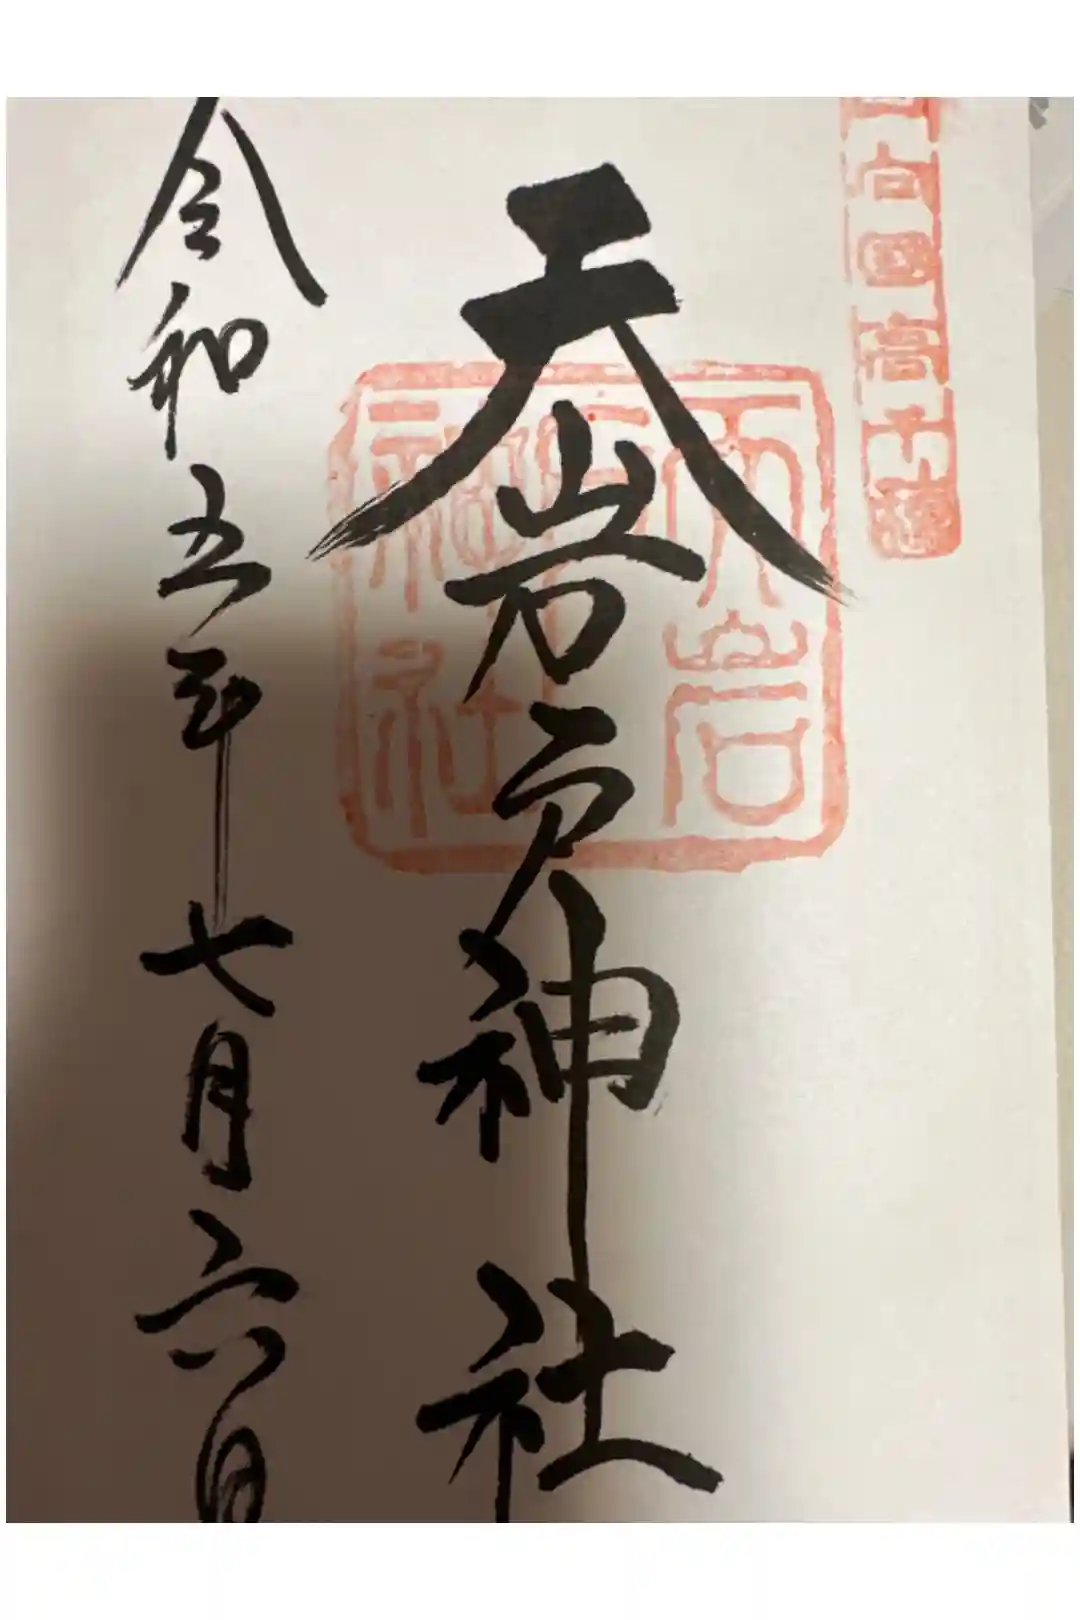 日向国高千穂
天岩戸神社
天岩戸神社
令和五年七月六日